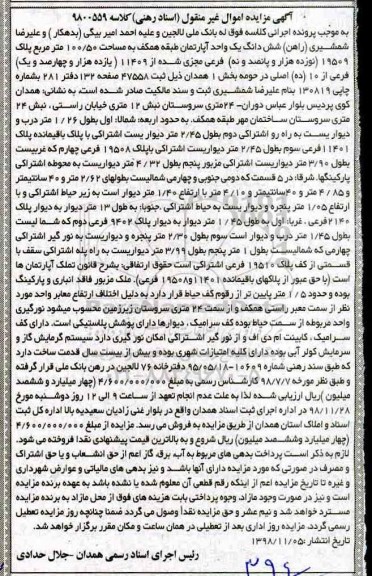 آگهی مزایده اموال غیر منقول (اسناد رهنی) کلاسه ۹۸۰۰۵۵۹
به موجب پرونده اجرائی کلاسه فوق له بانک ملی لالجین و علیه احمد امیر بیگی (بدهکار) و علیرضا
شمشیری (راهن) شش دانگ یک واحد آپارتمان طبقه همکف به مساحت ۱۰۰/۵۰ متر مربع پلاک
۱۹۵۰۹ (نوزده هزار و پانصد و نه) فرعی مجزی شده از ۱۱۴۰۹ (یازده هزار و چهارصد و یک)
فرعی از ۱۰ (ده) اصلی در حومه بخش ۱ همدان ذیل ثبت ۴۷۵۵۸ صفحه ۱۳۲ دفتر ۲۸۱ بشماره
چاپی ۱۳۰۸۱۹ بنام علیرضا شمشیری ثبت و سند مالکیت صادر شده است، به نشانی: همدان
کوی پردیس بلوار عباس دوران- ۲۴متری سروستان نبش ۱۲ متری خیابان راستی، نبش ۲۴
متری سروستان ساختمان مهر طبقه همکف. به حدود اربعه: شمالا: اول بطول ۱/۲۶ متر درب و
دیوار یست به راه رو اشتراکی دوم بطول ۲/۴۵ متر دیوار یست اشتراکی با پلاک باقیمانده پلاک
۱۱۴۰۱ فرعی سوم بطول ۲/۴۵ متر دیواریست اشتراکی باپلاک ۱۹۵۰۸ فرعی چهارم که غربیست
بطول ۳/۹۰ متر دیواریست اشتراکی مزبور پنجم بطول ۴/۳۲ متر دیواریست به محوطه اشتراکی
پارکینگها. شرقا: در ۵ قسمت که دومی جنوبی و چهارمی شمالیست بطولهای ۲/۶۲ متر و ۴۰ سانتیمتر
و ۴/۸۵ متر و ۴۰سانتیمتر و ۴/۱۰ متر با ارتفاع ۱/۴۰ متر دیوار است به زیر حیاط اشتراکی و با
ارتفاع ۱/۰۵ متر پنجره و دیوار یست به حیاط اشتراکی. جنوبا: به طول ۱۳ متر دیوار به دیوار پلاک
۲۱۴۰ فرعی. غربا: اول به طول ۱/۴۵ متر دیوار به دیوار پلاک ۹۴۰۲ فرعی دوم که شمالیست
بطول ۱/۴۵ متر درب و دیوار است سوم بطول ۲/۳۰ متر پنجره و دیواریست به نور گیر اشتراکی
چهارمی که شمالیست بطول ۱ متر پنجم بطول ۳/۹۹ متر دیواریست به راه پله اشتراکی سقف با
قسمتی از کف پلاک ۱۹۵۱۰ فرعی اشتراکی است حقوق ارتفاقی: بشرح قانون تملک آپارتمان ها
است (با حق عبور از پلاکهای باقیمانده ۱۱۴۰۱و۱۹۵۰۸ فرعی). ملک مزبور فاقد انباری و پارکینگ
بوده و حدود ۱/۵ متر پایین تر از رقوم کف حیاط قرار دارد به دلیل اختلاف ارتفاع معابر واحد مورد
نظر از سمت معبر راستی همکف و از سمت ۲۴ متری سروستان زیرزمین محسوب میشود نورگیری
واحد مربوطه از سمت حیاط بوده کف سرامیک، دیوارها دارای پوشش پلاستیکی است. دارای کف
سرامیک، کابینت ام دی اف و از نور گیر اشتراکی امکان نور گیری دارد سیستم گرمایش گاز و
سرمایش کولر آبی بوده دارای کلیه امتیازات شهری بوده و بیش از بیست سال قدمت ساخت دارد
که طبق سند رهنی شماره ۱۰۶۰۹-۹۵/۰۵/۱۸ دفترخانه ۷۶ لالجین در رهن بانک ملی قرار گرفته
و طبق نظر مورخه ۹۸/۷/۷ کارشناس رسمی به مبلغ ۴/۶۰۰/۰۰۰/۰۰۰ (چهار میلیارد و ششصد
میلیون )ریال ارزیابی شده لذا به علت عدم انجام تعهد از ساعت ۹ الی ۱۲ روز دوشنبه مورخ
۹۸/۱۱/۲۸ در اداره اجرای ثبت اسناد همدان واقع در بلوار غنی زادیان سعیدیه بالا اداره کل ثبت
اسناد و املاک استان همدان از طریق مزایده به فروش می رسد. مزایده از مبلغ ۴/۶۰۰/۰۰۰/۰۰۰
(چهار میلیارد وششصد میلیون) ریال شروع و به بالاترین قیمت پیشنهادی نقدا فروخته می شود.
لازم به ذکر است پرداخت بدهی های مربوط به آب، برق، گاز اعم از حق انشعاب و یا حق اشتراک
و مصرف در صورتی که مورد مزایده دارای آنها باشد و نیز بدهی های مالیاتی و عوارض شهرداری
و غیره تا تاریخ مزایده اعم از اینکه رقم قطعی آن معلوم شده یا نشده باشد به عهده برنده مزایده
است و نیز در صورت وجود مازاد، وجوه پرداختی بابت هزینه های فوق از محل مازاد به برنده مزایده
مسترد خواهد شد و نیم عشر و حق مزایده نقدا وصول می گردد ضمنا چنانچه روز مزایده تعطیل
رسمی گردد، مزایده روز اداری بعد از تعطیلی در همان ساعت و مکان مقرر برگزار خواهد شد.
تاریخ انتشار :۱۳۹۸/۱۱/۰۵
رئیس اجرای اسناد رسمی همدان -جلال حدادی